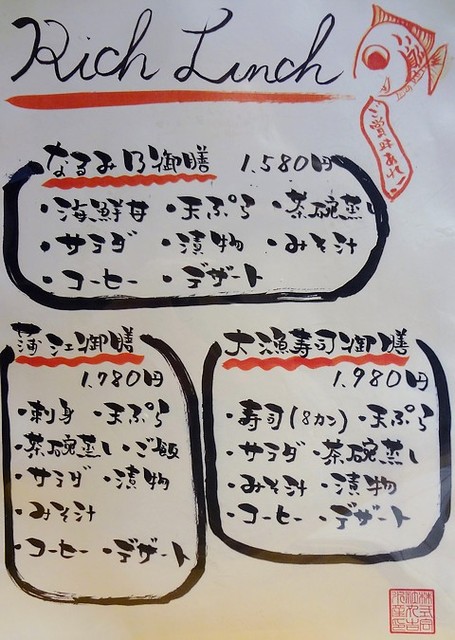 Rich Lunch
ご賞味あれ!
なるみ乃御膳 1.580円
・海鮮丼 ・天ぷら ・茶碗蒸し
・サラダ ・漬物 ・みそ汁
・コーヒー ・デザート
蒲江御膳
1.780円
・刺身 ・天ぷら
・茶碗蒸し ・ご飯
・サラダ ・漬物
・みそ汁
・コーヒー ・デザート
大漁寿司御膳
1.980円
・寿司(8カン) ・天ぷら
・サラダ ・茶碗蒸し
・みそ汁 ・漬物
・コーヒー ・デザート